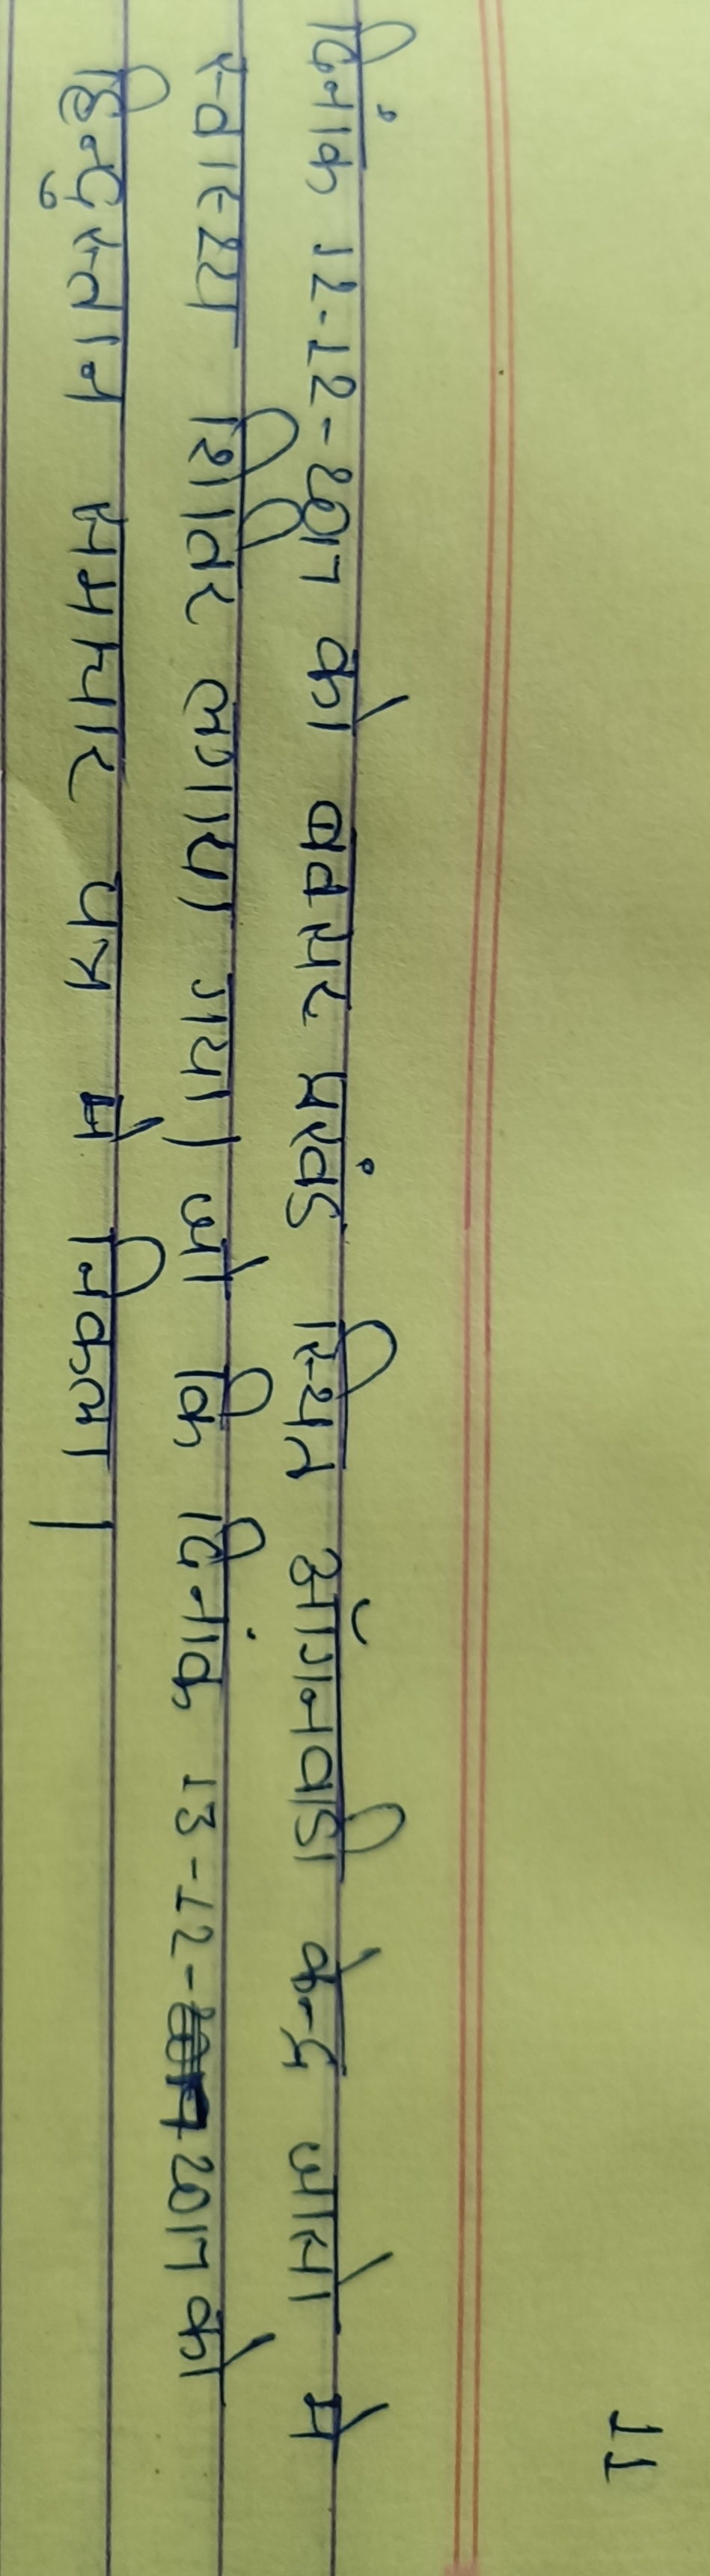 11
दिनांक 12-12-2017 को बक्सर प्रखंड स्थित आँगनवाडी केन्द्र जासो मे
स्वास्थ्य शिविर लगाया गया। जो कि दिनांक 13-12-2017 को
हिन्दुस्तान समाचार पत्र मे निकला।